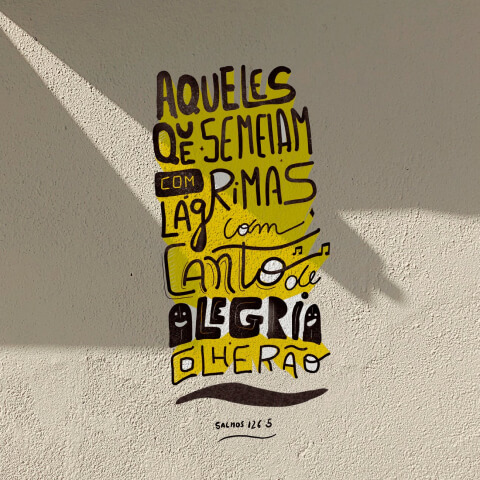 AQUELES
QUE · SEMEIAM
COM
LÁGRIMAS
com
CANTO de
ALEGRIA
COLHERÃO
SALMOS 126 5